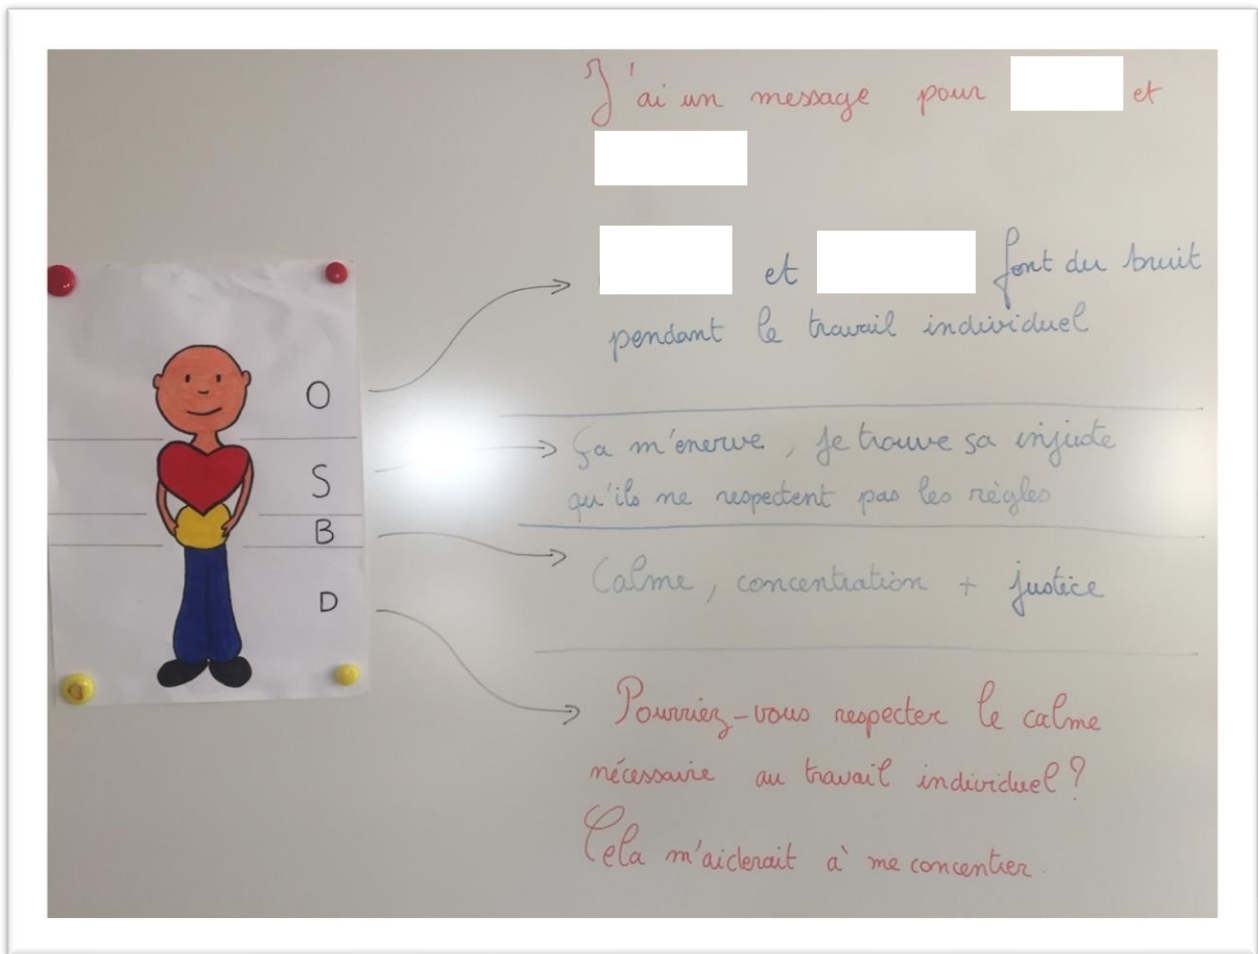 J'ai un message pour et
et font du bruit
pendant le travail individuel
O
Ça m'énerve, je trouve sa injuste
qu'ils ne respectent pas les règles
S
B
Calme, concentration + justice
D
Pourriez-vous respecter le calme
nécessaire au travail individuel ?
Cela m'aiderait à me concentrer.